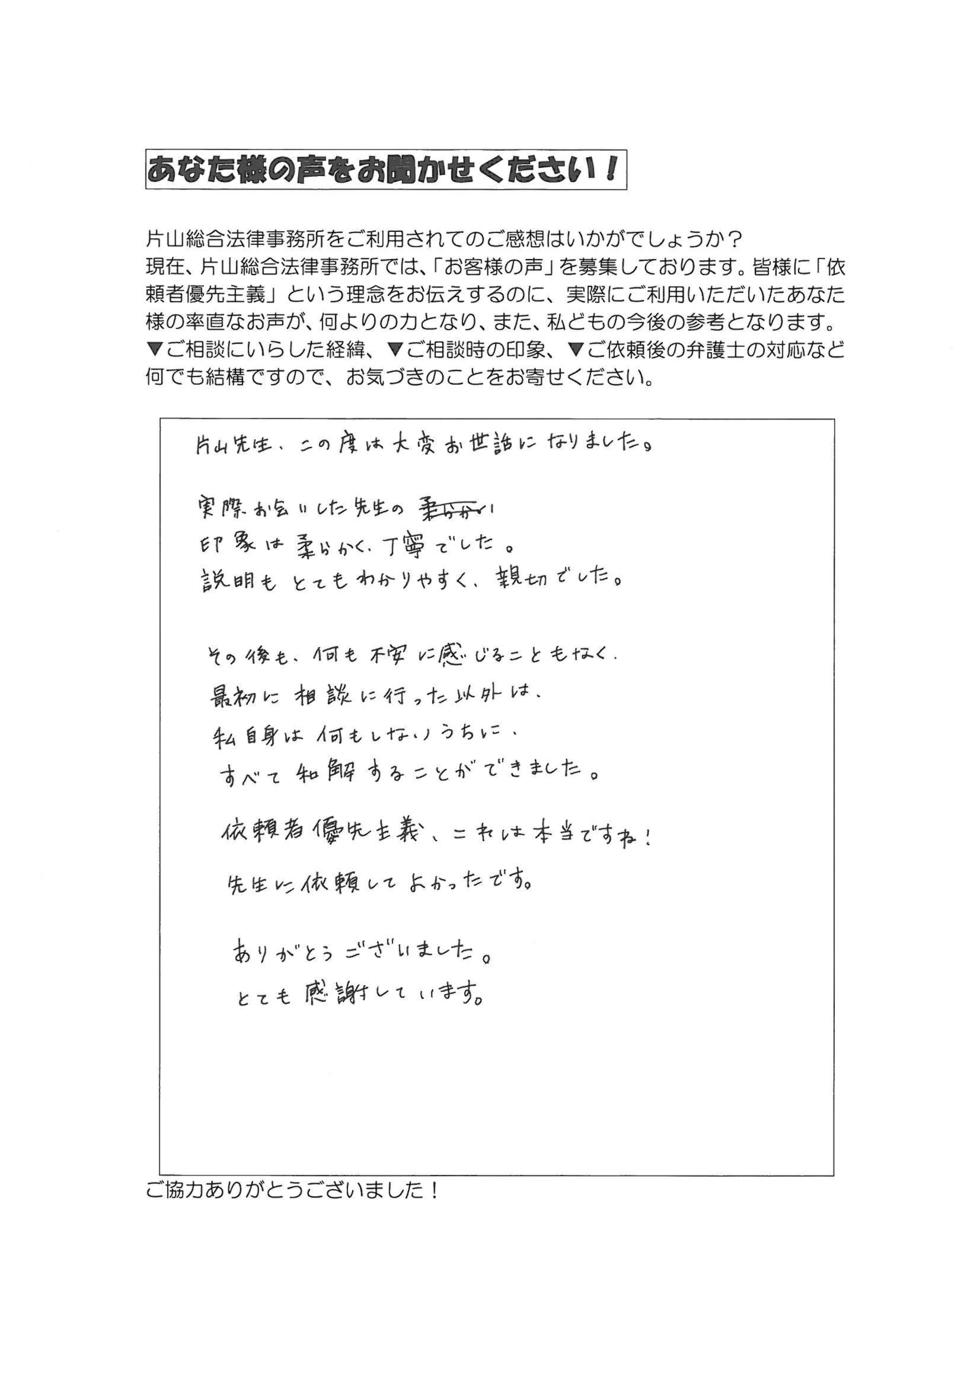 あなた様の声をお聞かせください！
片山総合法律事務所をご利用されてのご感想はいかがでしょうか？
現在、片山総合法律事務所では、「お客様の声」を募集しております。皆様に「依
頼者優先主義」という理念をお伝えするのに、実際にご利用いただいたあなた
様の率直なお声が、何よりの力となり、また、私どもの今後の参考となります。
▼ご相談にいらした経緯、▼ご相談時の印象、▼ご依頼後の弁護士の対応など
何でも結構ですので、お気づきのことをお寄せください。
片山先生、この度は大変お世話になりました。
実際お会いした先生の 柔らかい
印象は柔らかく、丁寧でした。
説明もとてもわかりやすく、親切でした。
その後も、何も不安に感じることもなく、
最初に相談に行った以外は、
私自身は何もしないうちに、
すべて和解することができました。
依頼者優先主義、これは本当ですね！
先生に依頼してよかったです。
ありがとうございました。
とても感謝しています。
ご協力ありがとうございました！